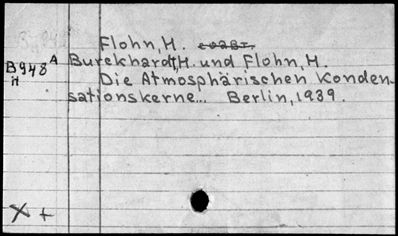 Flohn, H.
B948 A
it
Burckhardt, H. und Flohn, H.
Die Atmosphärischen Konden-
sationskerne... Berlin, 1939.
X +